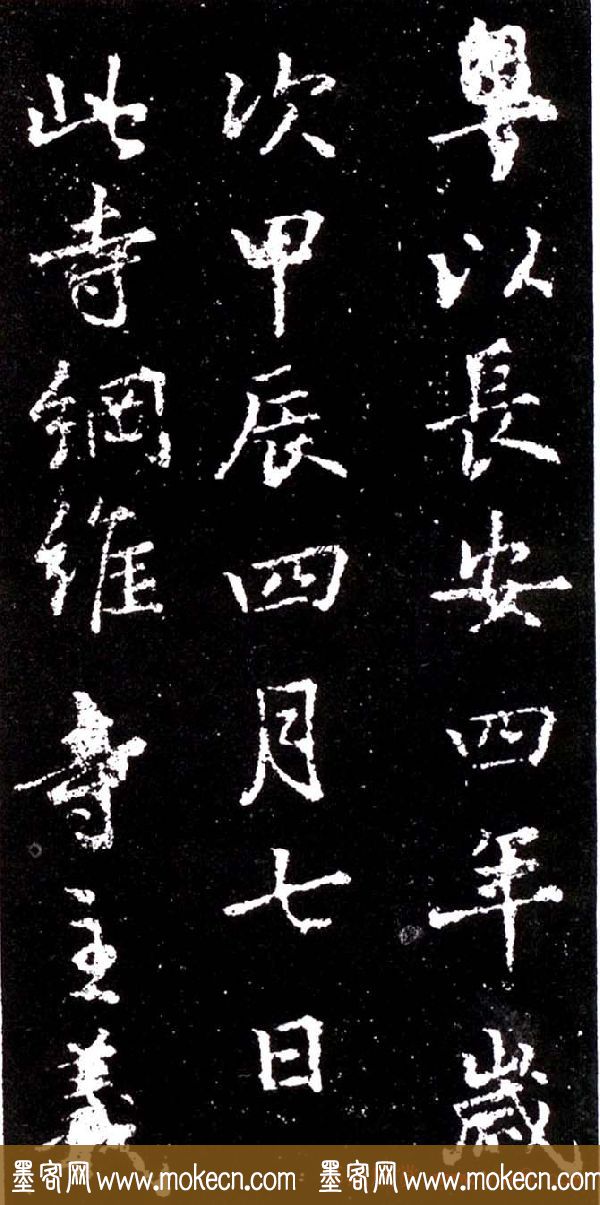 粤以長安四年歳
次甲辰四月七日
此寺綱維寺主義
墨客网 www.mokecn.com 墨客网 www.mokecn.com